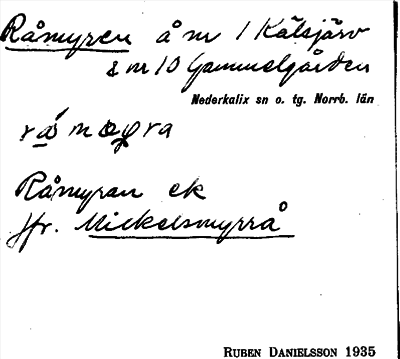 Råmyren å m 1 Kälsjärv
& m 10 Gammelgården
Nederkalix sn o. tg. Norrb. län
Råmyran ek
jfr. Mickelsmyrrå
RUBEN DANIELSSON 1935